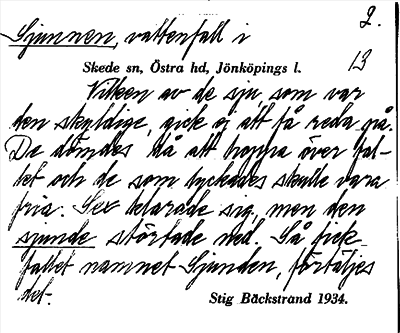 2.
Sjunnen, vattenfall i
Skede sn, Östra hd, Jönköpings l.
13
Vilken av de sju som var
den skyldige, gick ej att få reda på.
De dömdes då att hoppa över fal-
let och de som lyckades skulle vara
fria. Sex klarade sig, men den
sjunde störtade ned. Så fick
fallet namnet Sjunden, förtäljes
det.
Stig Bäckstrand 1934.